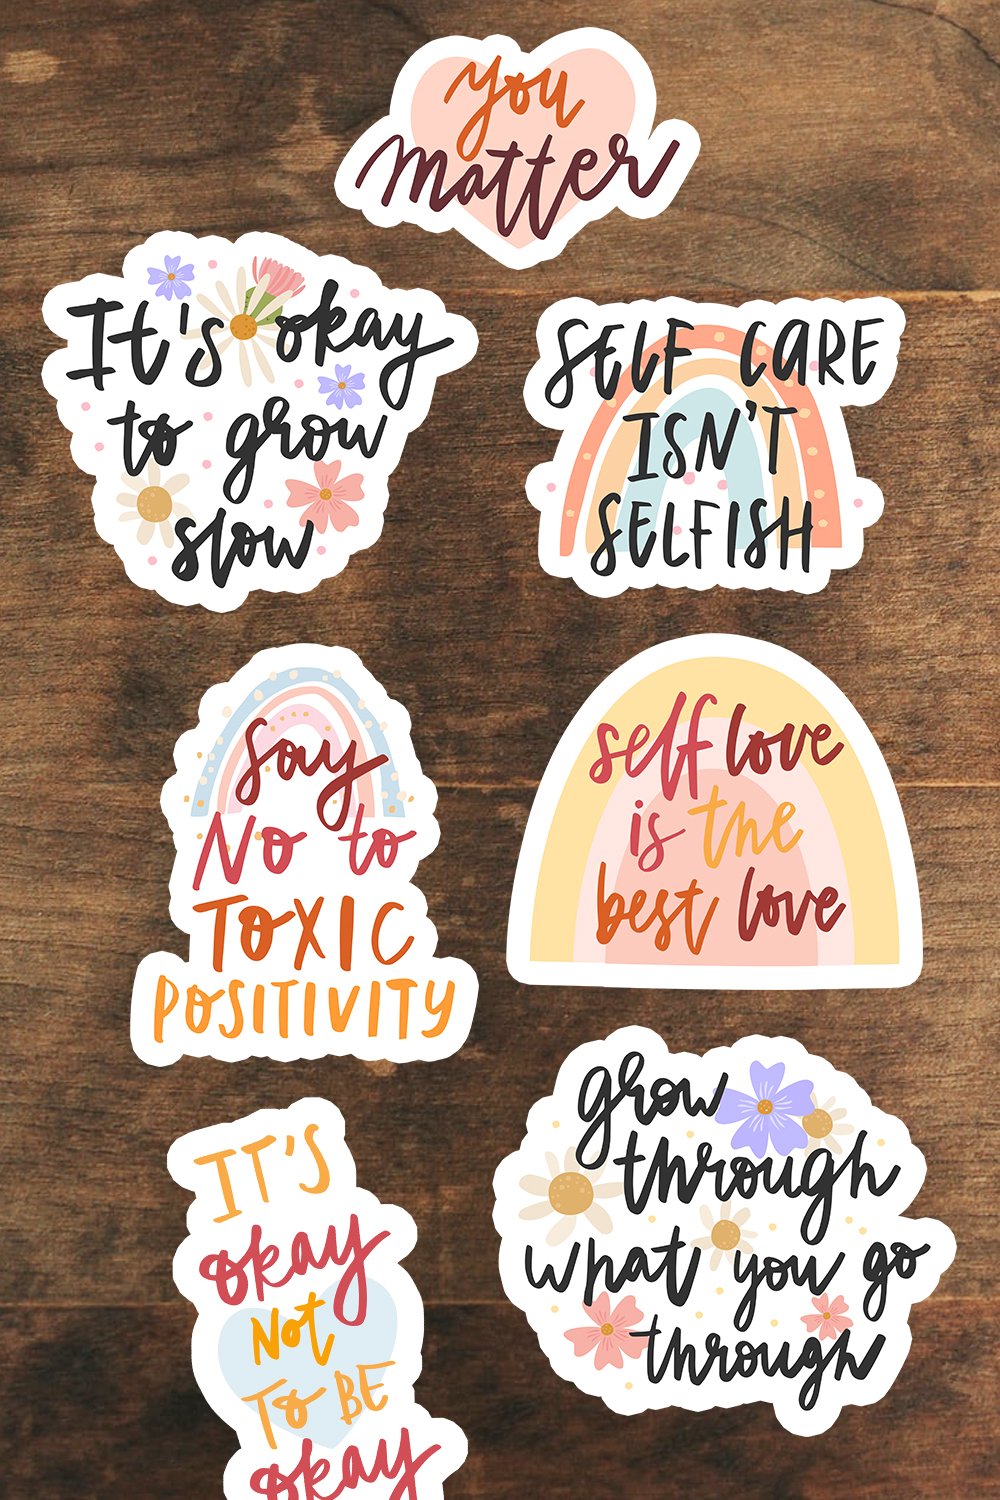 you
matter
It's okay
to grow
slow
SELF CARE
ISN'T
SELFISH
Say
No to
TOXIC
POSITIVITY
self love
is the
best love
IT'S
okay
Not
To BE
okay
grow
through
what you go
through